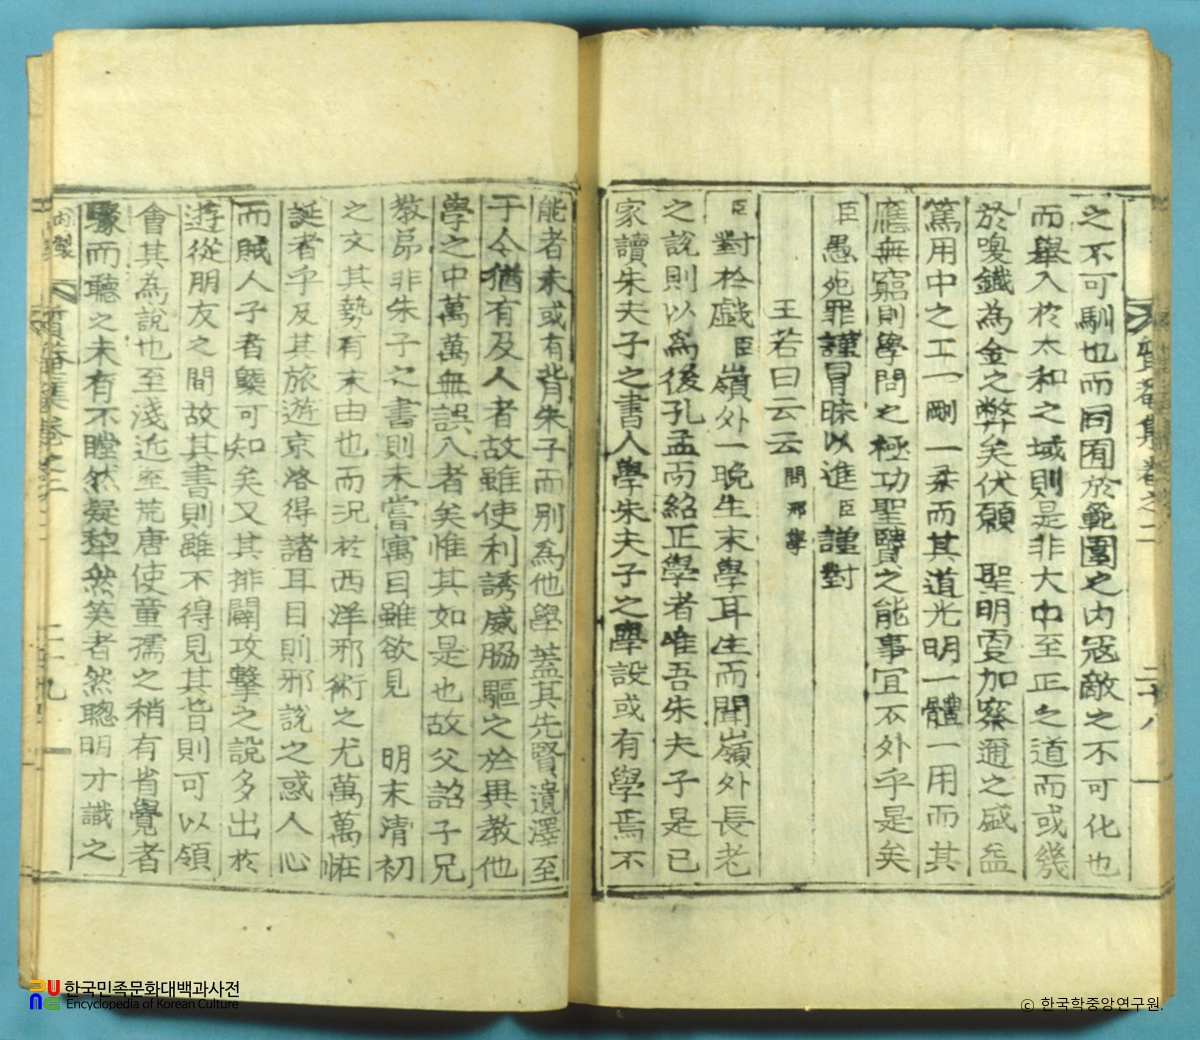 之不可馴也而同囿於範圍之內寇敵之不可化也
而擧入於太和之域則是非大中至正之道而或幾
於嗄鐵為金之弊矣伏願 聖明更加察邇之盛益
篤用中之工一剛一柔而其道光明一體一用而其
應無窮則學問之極功聖賢之能事宜不外乎是矣
臣愚死罪謹冒昧以進臣謹對
王若曰云云 問邪學
臣對於戲臣嶺外一晚生末學耳生而聞嶺外長老
之說則以為後孔孟而紹正學者唯吾朱夫子是已
家讀朱夫子之書人學朱夫子之學設或有學焉不
能者未或有背朱子而別為他學蓋其先賢遺澤至
于今猶有及人者故雖使利誘威脇驅之於異教他
學之中萬萬無誤入者矣惟其如是也故父詔子兄
教苟非朱子之書則未嘗寓目雖欲見 明末清初
之文其勢有末由也而況於西洋邪術之尤萬萬恠
誕者乎及其旅遊京洛得諸耳目則邪說之惑人心
而賊人子者槩可知矣又其排闢攻擊之說多出於
遊從朋友之間故其書則雖不得見其旨則可以領
會其為說也至淺近至荒唐使童孺之稍有省覺者
驟而聽之未有不瞠然疑犁然笑者然聰明才識之
質菴集卷之二
二十八
二十九
한국민족문화대백과사전
Encyclopedia of Korean Culture
ⓒ 한국학중앙연구원.